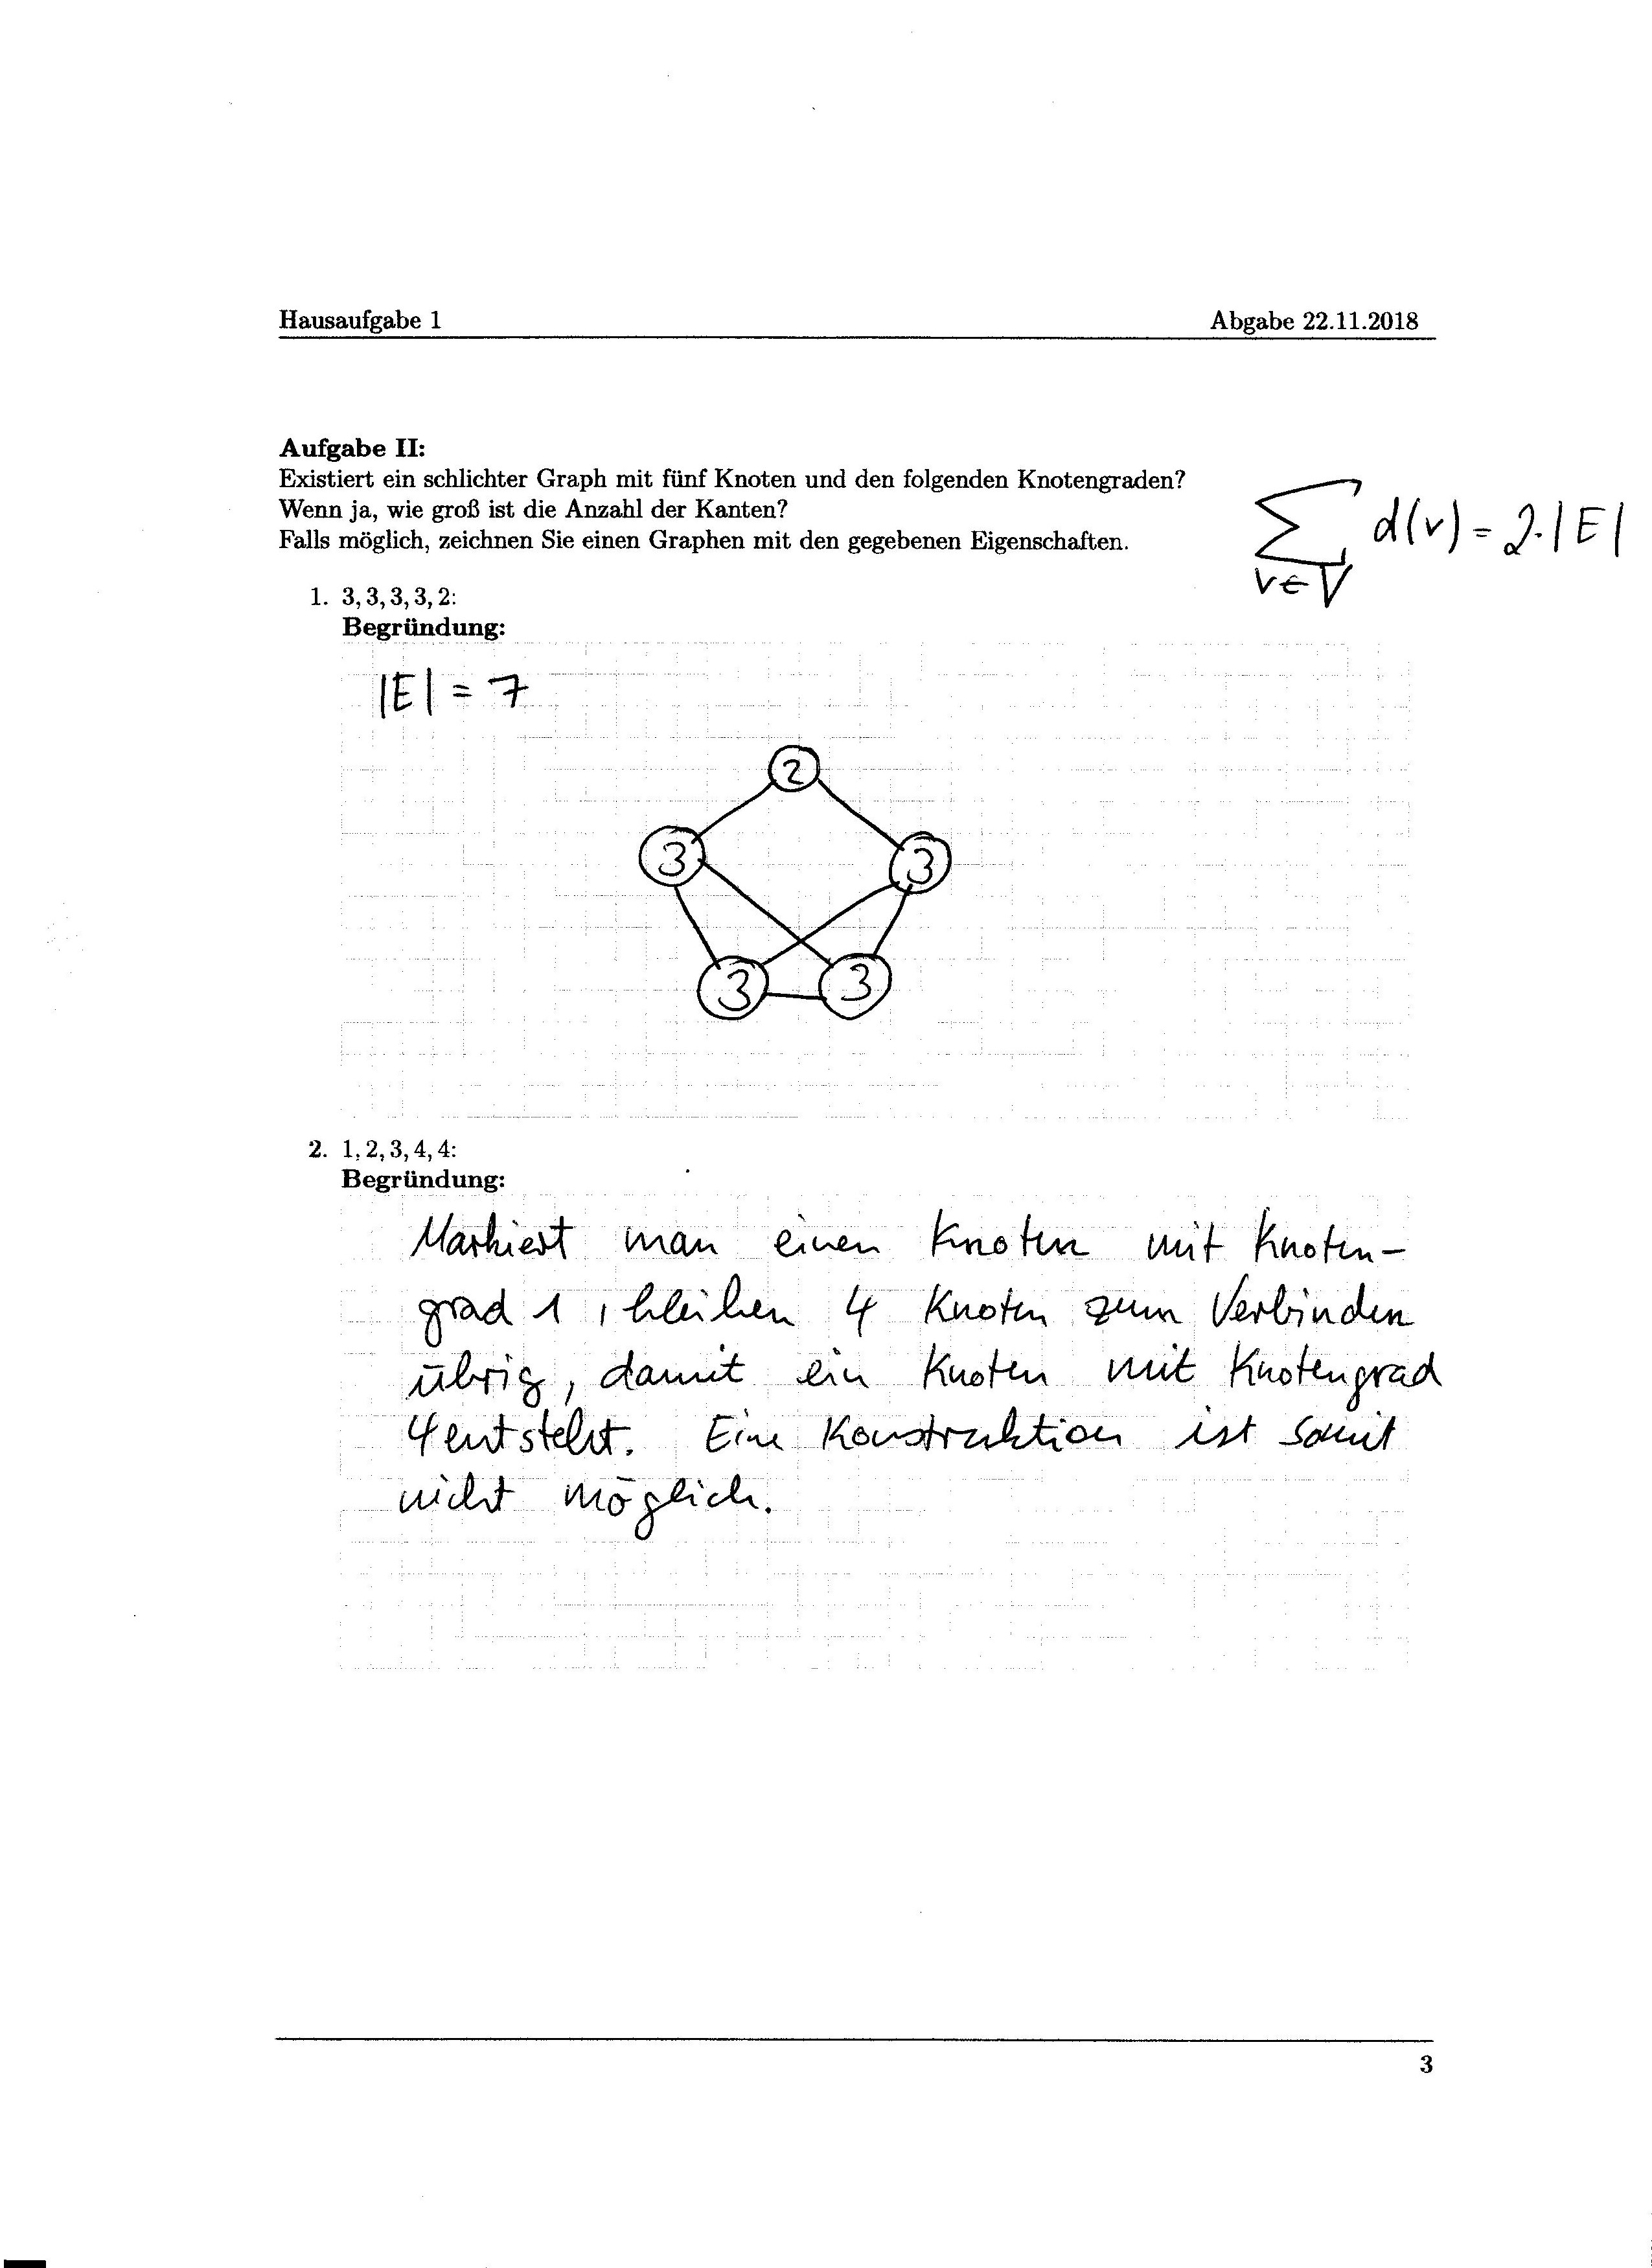 Hausaufgabe 1 Abgabe 22.11.2018
Aufgabe II:
Existiert ein schlichter Graph mit fünf Knoten und den folgenden Knotengraden?
Wenn ja, wie groß ist die Anzahl der Kanten?
Falls möglich, zeichnen Sie einen Graphen mit den gegebenen Eigenschaften.
∑ d(v) = 2·|E|
v∈V
1. 3, 3, 3, 3, 2:
Begründung:
|E| = 7
2
3 3
3 3
2. 1, 2, 3, 4, 4:
Begründung:
Markiert man einen Knoten mit Knoten-
grad 1, bleiben 4 Knoten zum Verbinden
übrig, damit ein Knoten mit Knotengrad
4 entsteht. Eine Konstruktion ist somit
nicht möglich.
3